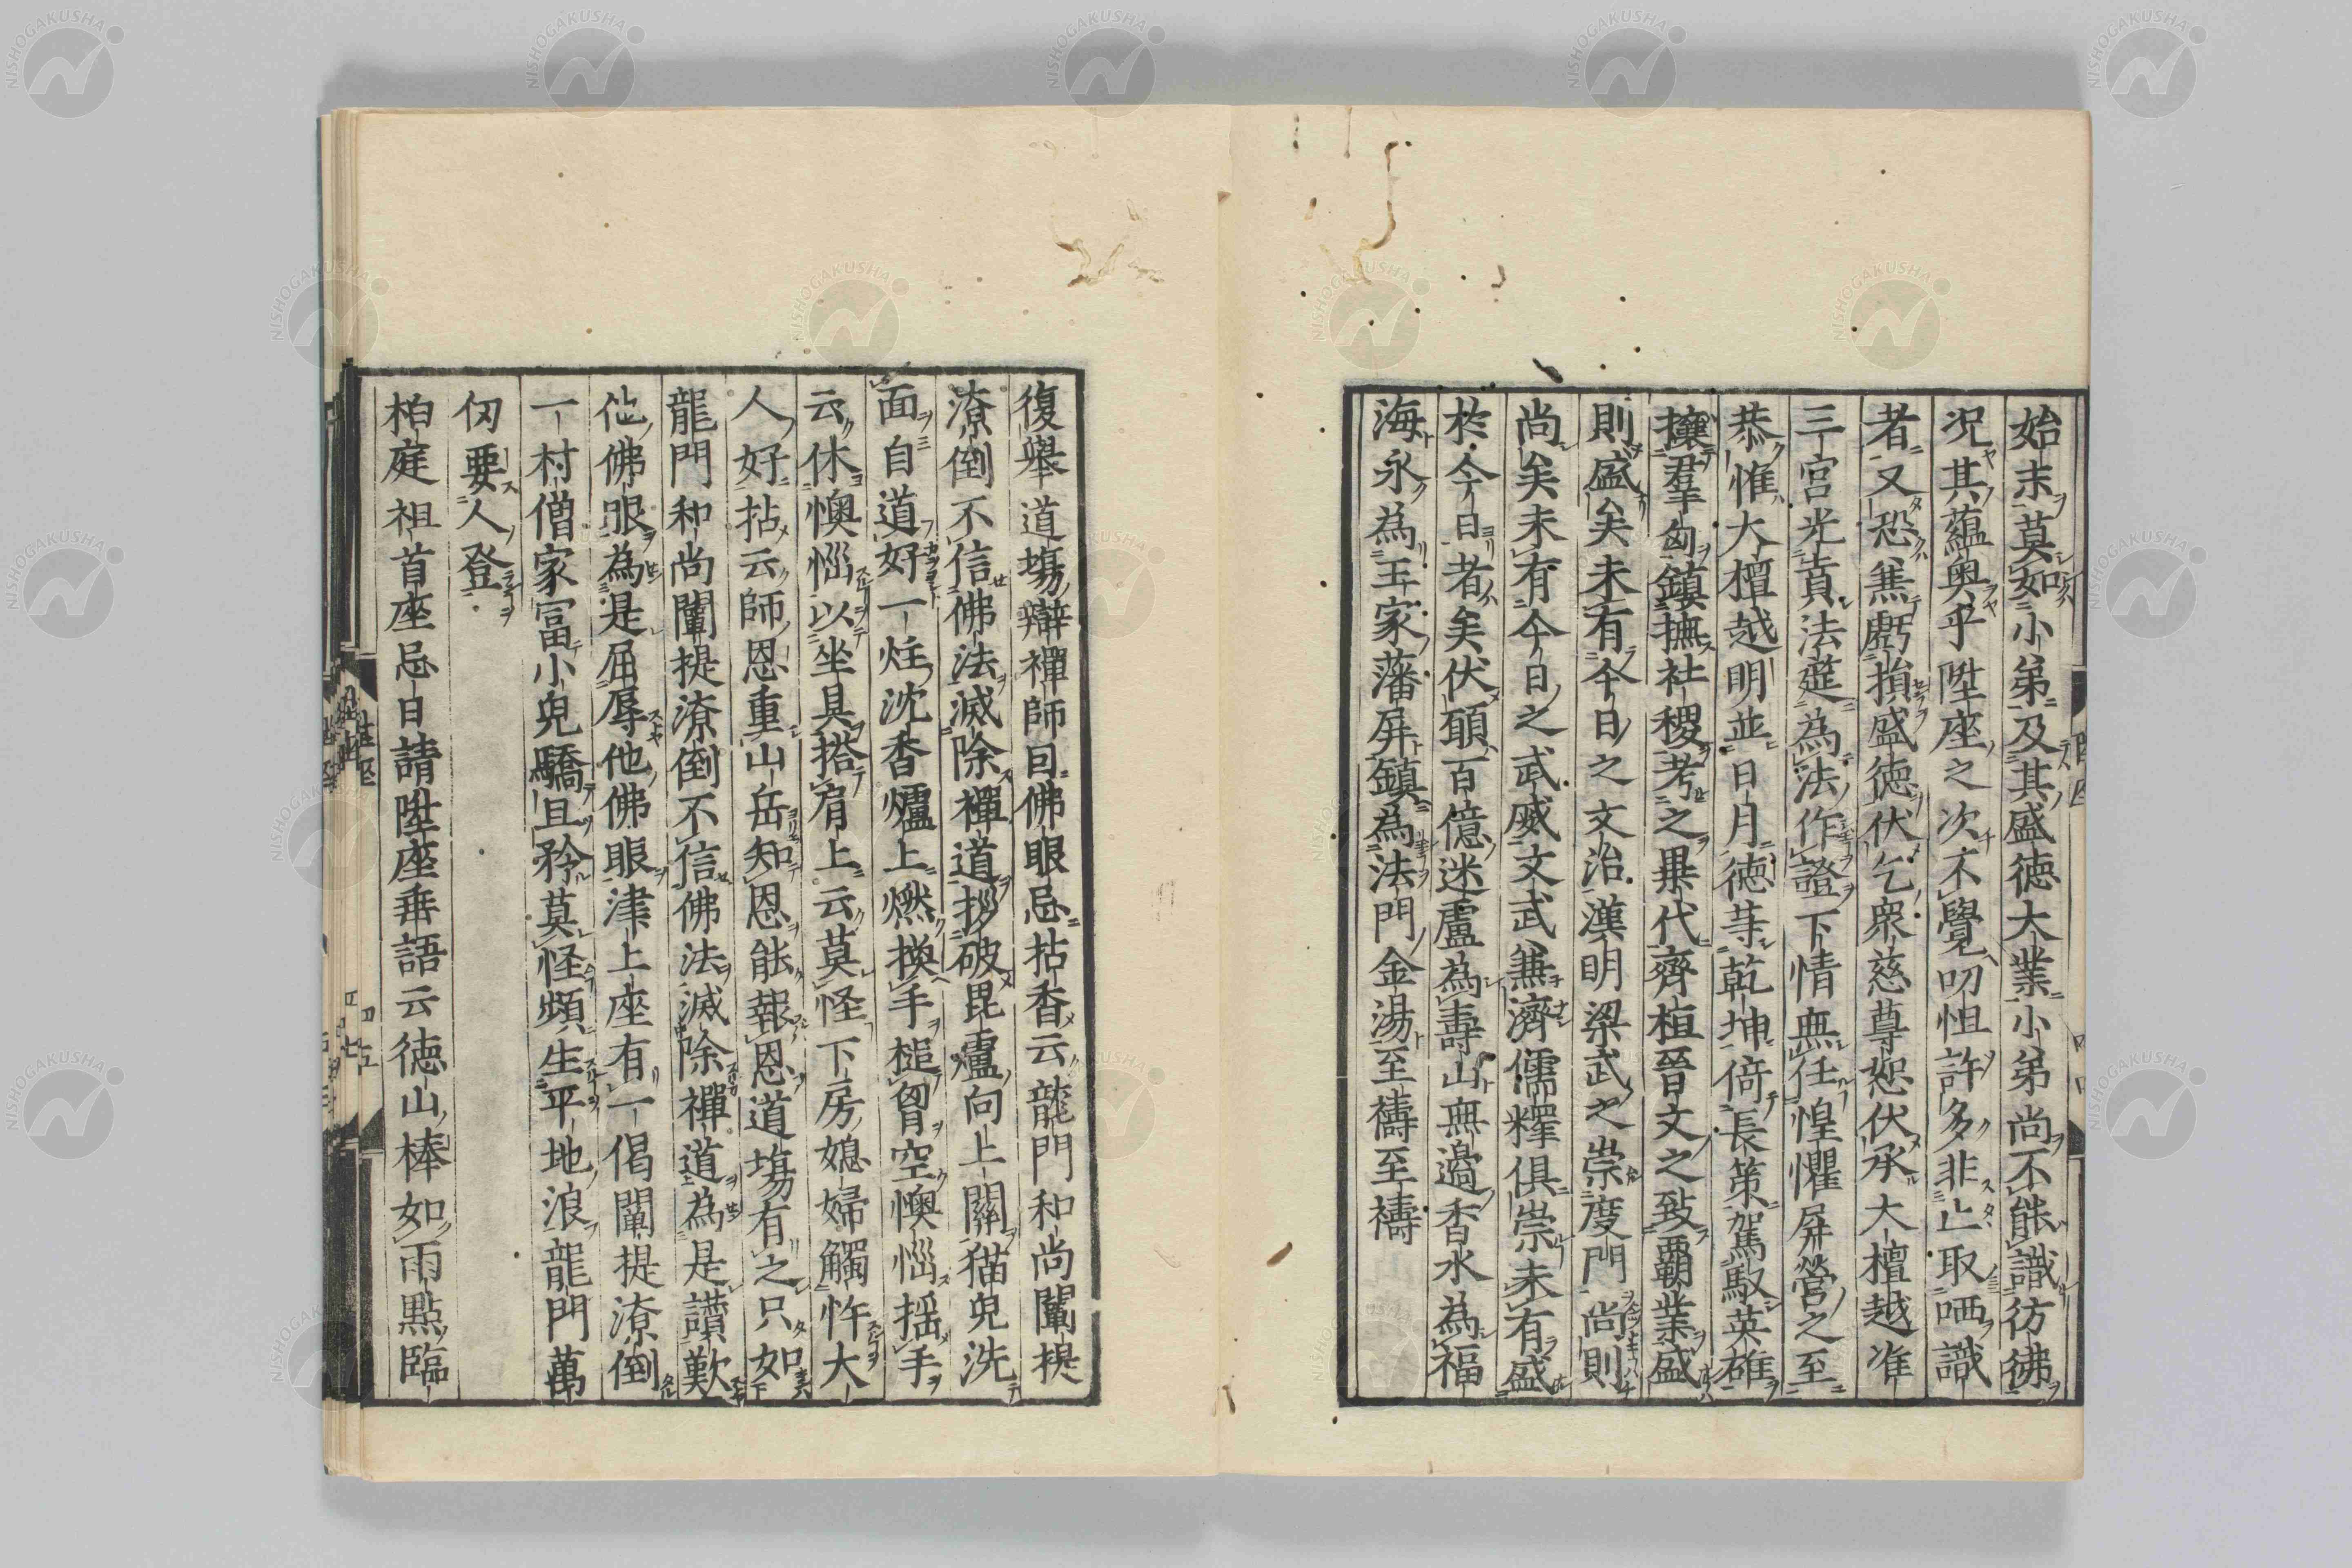 始末莫如小弟及其盛徳大業小弟尚不能識彷彿
况其蘊奥乎陞座之次不覺叨怛許多非止取哂識
者又恐無虧損盛徳伏乞衆慈尊恕伏承大檀越准
三宮光賁法莚為法作證下情無任惶懼屏營之至
恭惟大檀越明並日月徳等乾坤倚長策駕馭英雄
攘羣匈鎮撫社稷考之畢代齊桓晉文之致覇業盛
則盛矣未有今日之文治漢明梁武之崇度門尚則
尚矣未有今日之武威文武兼濟儒釋俱崇未有盛
於今日者矣伏願百億迷盧為壽山無邉香水為福
海永為王家藩屏鎮為法門金湯至禱至禱
復舉道塲辯禪師囙佛眼忌拈香云龍門和尚闡提
潦倒不信佛法滅除禪道拶破毘盧向上關猫兒洗
面自道好一炷沈香爐上燃換手槌胷空懊惱揺手
云休懊惱以坐具搭肩上云莫怪下房媳婦觸忤大
人好拈云師恩重山岳知恩能報恩道塲有之只如
龍門和尚闡提潦倒不信佛法滅除禪道為是讃歎
佗佛眼為是屈辱他佛眼津上座有一偈闡提潦倒
一村僧家冨小兒驕且矜莫怪頻生平地浪龍門萬
仭要人登
栢庭祖首座忌日請陞座垂語云徳山棒如雨點臨